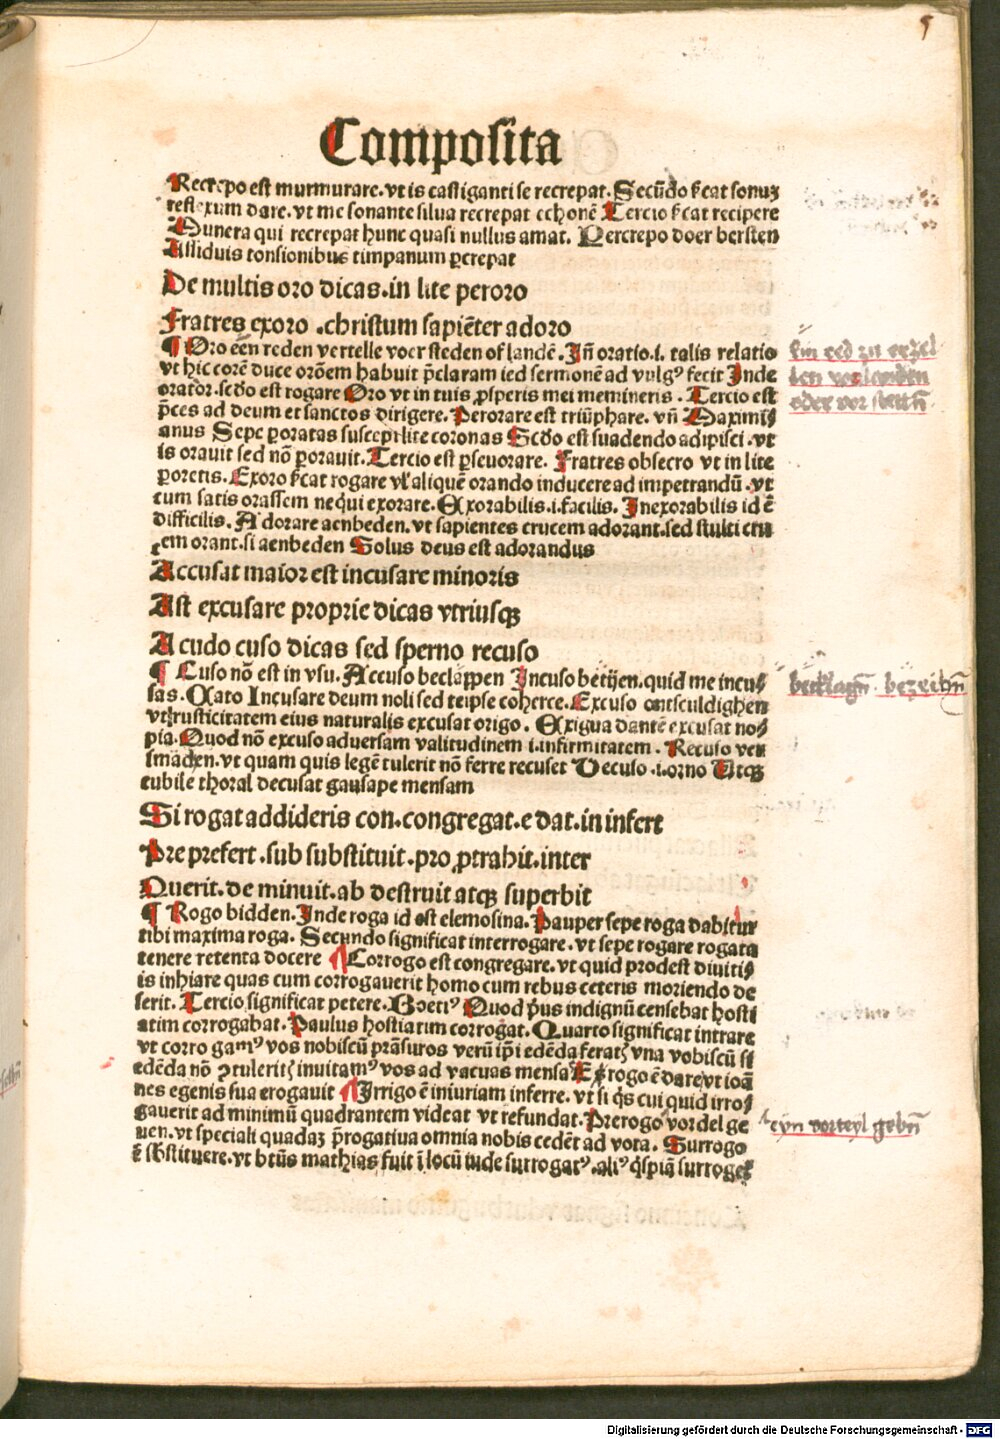 5
Composita
Recrepo est murmurare. vt is castiganti se recrepat. Secūdo ſcat sonuꝫ
reflexum dare. vt me sonante silua recrepat echonē Tercio ſcat recipere
Munera qui recrepat hunc quasi nullus amat. Percrepo doer bersten
Assiduis tonsionibus timpanum ꝑcrepat
De multis oro dicas. in lite peroro
Fratres exoro .christum sapiēter adoro
¶ Oro een reden vertelle voer steden of landē. Jn̄ oratio .i. talis relatio
vt hic corē duce orōem habuit p̄claram ied sermonē ad vulgꝰ fecit Jnde
orator. scđo est rogare Oro vt in tuis ꝓsperis mei memineris . Tercio est
p̄ces ad deum et sanctos dirigere. Perorare est triūphare. vn̄ Maximi⸗
anus Sepe ꝑoratas suscepi lite coronas Scđo est suadendo adipisci .vt
is orauit sed nō ꝑorauit. Tercio est ꝑseuorare. Fratres obsecro vt in lite
ꝑoretis. Exoro ſcat rogare vl' aliquē orando inducere ad impetrandū .vt
cum satis orassem nequi exorare. Exorabilis .i. facilis. Jnexorabilis id ē
difficilis. Adorare aenbeden. vt sapientes crucem adorant. sed stulti cru
cem orant. si aenbeden Solus deus est adorandus
Accusat maior est incusare minoris
Ast excusare proprie dicas vtriusqꝫ
A cudo cuso dicas sed sperno recuso
¶ Cuso nō est in vsu. Accuso beclappen Jncuso betijen. quid me incu⸗
sas. Cato Incusare deum noli sed teipse coherce. Excuso ontsculdighen
vt rusticitatem eius naturalis excusat origo . Exigua dantē excusat no⸗
pia. Quod nō excuso aduersam valitudinem i. infirmitatem . Recuso ver
smaden. vt quam quis legē tulerit nō ferre recuset Decuso .i. orno Atqꝫ
cubile thoral decusat gausape mensam
Si rogat addideris con. congregat. e dat. in infert
Pre prefert .sub substituit. pro ꝓtrahit. inter
Querit. de minuit. ab destruit atqꝫ superbit
¶ Rogo bidden. Jnde roga id est elemosina. Pauper sepe roga dabitur
tibi maxima roga. Secundo significat interrogare. vt sepe rogare rogata
tenere retenta docere ¶ Corrogo est congregare. vt quid prodest diuitijs
is inhiare quas cum corrogauerit homo cum rebus ceteris moriendo de
serit. Tercio significat petere. Boetiꝰ Quod p̄us indignū censebat hosti
atim corrogabat. Paulus hostiatim corrogat. Quarto significat intrare
vt corro gamꝰ vos nobiscū prāsuros verū ip̄i edēda feratꝭ vna vobiscū si
edēda nō ꝯtuleritꝭ inuitamꝰ vos ad vacuas mensas Erogo ē dare vt ioā
nes egenis sua erogauit ¶ Jrrigo ē iniuriam inferre. vt si q̇s cui quid irro⸗
gauerit ad minimū quadrantem videat vt refundat. Prerogo vordel ge
uen. vt speciali quadaꝫ p̄rogatiua omnia nobis cedēt ad vota. Surrogo
ē sbstituere. vt btūs mathias fuit ī locū iude surrogatꝰ. aliꝰ q̇spiā surroget
Ein red zu erzel
len vor landen
oder vor stettn̄
becklagn̄ . bezeihn̄
eyn vorteyl gebn̄
Digitalisierung gefördert durch die Deutsche Forschungsgemeinschaft - DFG